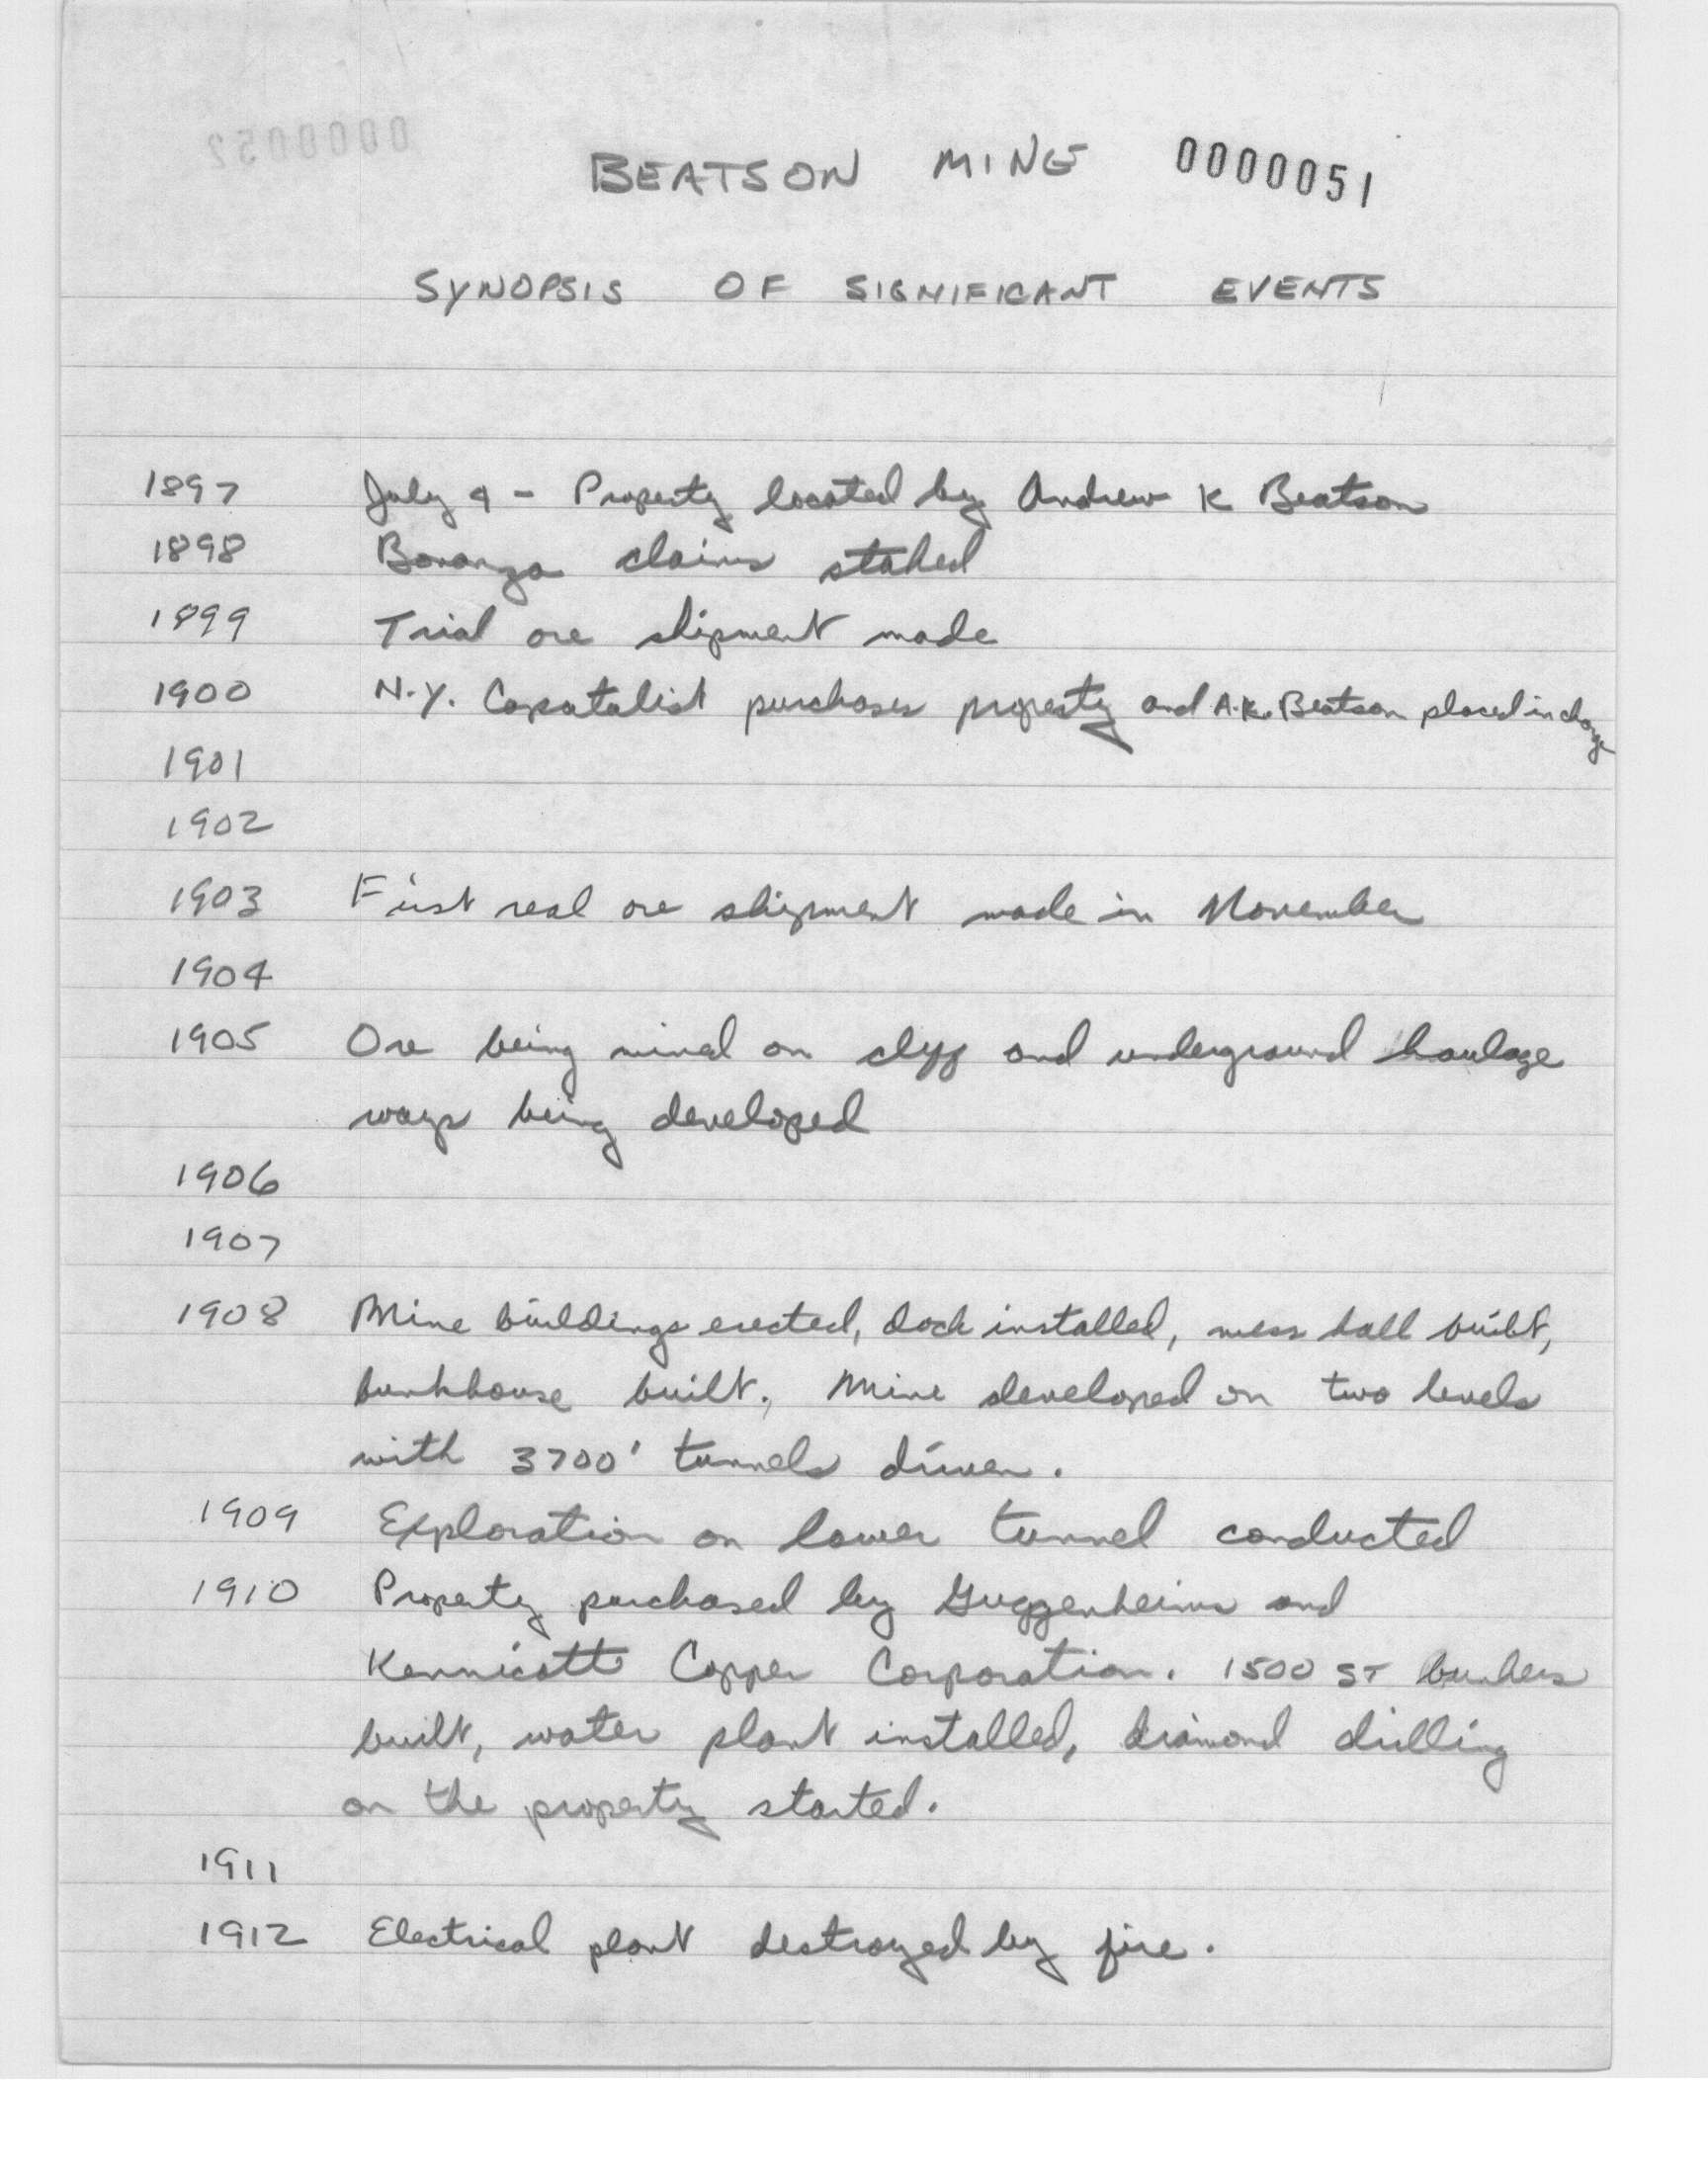 0000052
BEATSON MINE 0000051
SYNOPSIS OF SIGNIFICANT EVENTS
1897 July 4 - Property located by Andrew K Beatson
1898 Bonanza claims staked
1899 Trial ore shipment made
1900 N.Y. Capatalist purchases property and A.K. Beatson placed in charge
1901
1902
1903 First real ore shipment made in November
1904
1905 Ore being mined on cliff and underground haulage
ways being developed
1906
1907
1908 Mine buildings erected, dock installed, mess hall built,
bunkhouse built. Mine developed on two levels
with 3700' tunnels driven.
1909 Exploration on lower tunnel conducted
1910 Property purchased by Guggenheims and
Kennicott Copper Corporation. 1500 ST bunkers
built, water plant installed, diamond drilling
on the property started.
1911
1912 Electrical plant destroyed by fire.